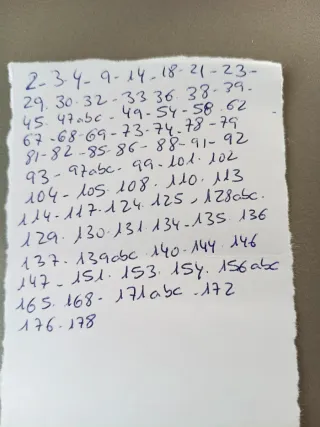 2-3.4-9-14-18.21-23-
29.30.32-33 36.38-39.
45.47abc-49-54-58.62
67-68-69-73-74-78-79
81-82-85.86-88-91-92
93-97abc-99-101.102
104-105.108.110.113
114-117.124.125.128abc.
129.130.131.134-135.136
137-139abc.140-144.146
147-151.153.154.156abc
165.168-171abc.172
176.178